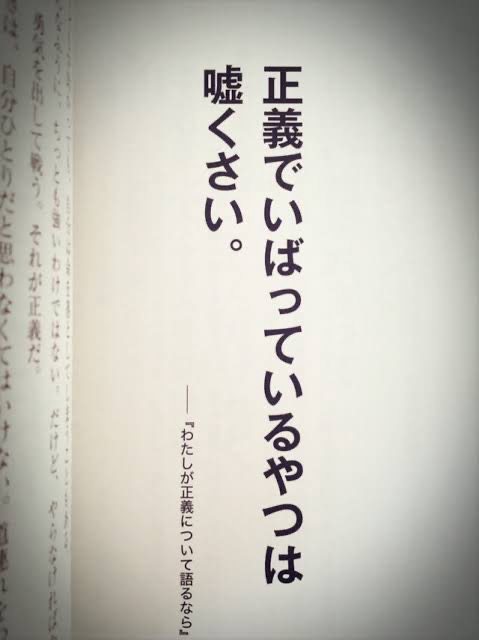 正義でいばっているやつは
嘘くさい。
――『わたしが正義について語るなら』
ちっとも強いわけではない。だけど、やらなければ
勇気を出して戦う。それが正義だ。
自分ひとりだと思わなくてはいけない。